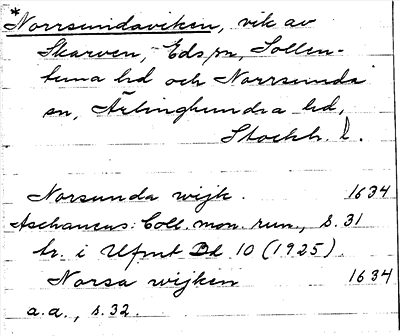 *Norrsundaviken, vik av
Skarven, Eds sn, Sollen-
tuna hd och Norrsunda
sn, Ärlinghundra hd,
Stockh. l.
Norsunda wijk. 1634
Aschaneus: Coll. mon. run., s. 31
tr. i Ufmt Bd 10 (1925).
Norsa wijken 1634
a.a., s. 32.